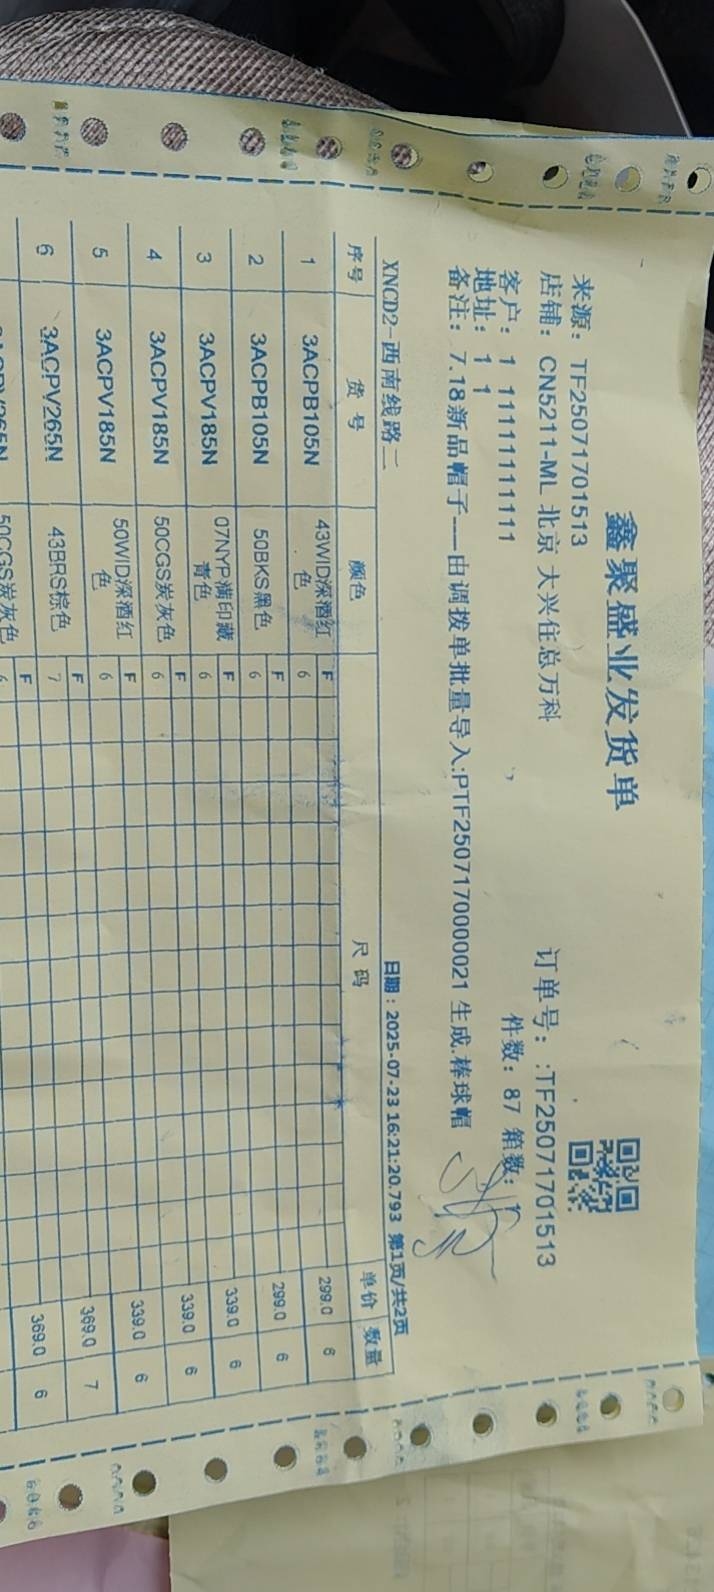 鑫聚盛业发货单
来源：TF25071701513
店铺：CN5211-ML 北京 大兴住总万科 订单号：:TF25071701513
客户：1 11111111111 件数：87 箱数：
地址：1 1
备注：7.18新品帽子----由调拨单批量导入:PTF250717000021 生成.棒球帽
XNCD2-西南线路二 日期：2025-07-23 16:21:20.793 第1页/共2页
序号 货号 颜色 尺码 单价 数量
F
1 3ACPB105N 43WID深酒红色 6 299.0 6
F
2 3ACPB105N 50BKS黑色 6 299.0 6
F
3 3ACPV185N 07NYP满印藏青色 6 339.0 6
F
4 3ACPV185N 50CGS炭灰色 6 339.0 6
F
5 3ACPV185N 50WID深酒红色 6 339.0 6
F
6 3ACPV265N 43BRS棕色 7 369.0 7
F
50CGS炭灰色 6 369.0 6